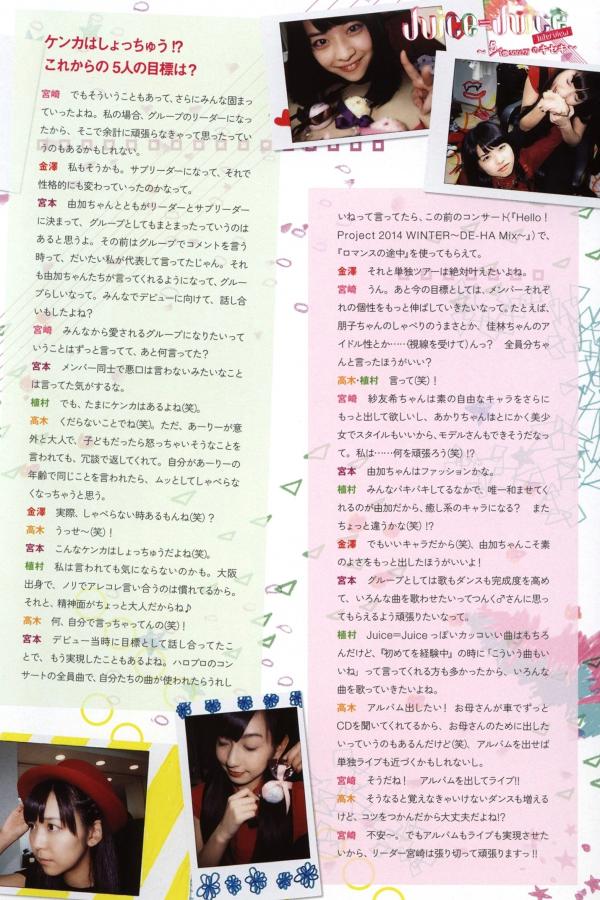 Juice=Juice
Interview
ケンカはしょっちゅう!?
これからの5人の目標は?
宮崎 でもそういうこともあって、さらにみんな固まっ
ていったよね。私の場合、グループのリーダーになっ
たから、そこで余計に頑張らなきゃって思ったってい
うのもあるかもしれない。
金澤 私もそうかも。サブリーダーになって、それで
性格的にも変わっていったのかなって。
宮本 由加ちゃんとともがリーダーとサブリーダー
に決まって、グループとしてもまとまったっていうのは
あると思うよ。その前はグループでコメントを言う
時って、だいたい私が代表して言ってたじゃん。それ
も由加ちゃんたちが言ってくれるようになって、グルー
プらしいなって。みんなでデビューに向けて、話し合
いもしたよね?
宮崎 みんなから愛されるグループになりたいって
いうことはずっと言ってて、あと何言ってた?
宮本 メンバー同士で悪口は言わないみたいなこと
は言ってた気がするな。
植村 でも、たまにケンカはあるよね(笑)。
高木 くだらないことでね(笑)。ただ、あーりーが意
外と大人で、子どもだったら怒っちゃいそうなこと
を言われても、冗談で返してくれて。自分があーりーの
年齢で同じことを言われたら、ムッとしてしゃべらな
くなっちゃうと思う。
金澤 実際、しゃべらない時あるもんね(笑)?
高木 うっせ〜(笑)!
宮本 こんなケンカはしょっちゅうだよね(笑)。
植村 私は言われても気にならないのかも。大阪
出身で、ノリでアレコレ言い合うのは慣れてるから。
それと、精神面がちょっと大人だからね♪
高木 何、自分で言っちゃってんの(笑)!
宮本 デビュー当時に目標として話し合ってたこ
とで、もう実現したこともあるよね。ハロプロのコン
サートの全員曲で、自分たちの曲が使われたらうれし
いねって言ってたら、この前のコンサート(『Hello!
Project 2014 WINTER〜DE-HA Mix〜』)で、
『ロマンスの途中』を使ってもらえて。
金澤 それと単独ツアーは絶対叶えたいよね。
宮崎 うん。あと今の目標としては、メンバーそれぞ
れの個性をもっと伸ばしていきたいなって。たとえば、
朋子ちゃんのしゃべりのうまさとか、佳林ちゃんのア
イドル性とか……(視線を受けて)んっ? 全員分ちゃ
んと言ったほうがいい?
高木・植村 言って(笑)!
宮崎 紗友希ちゃんは素の自由なキャラをさらに
もっと出して欲しいし、あかりちゃんはとにかく美少
女でスタイルもいいから、モデルさんもできそうだなっ
て。私は……何を頑張ろう(笑)!?
宮本 由加ちゃんはファッションかな。
植村 みんなバキバキしてるなかで、唯一和ませてく
れるのが由加だから、癒し系のキャラになる? また
ちょっと違うかな(笑)!?
金澤 でもいいキャラだから(笑)、由加ちゃんこそ素
のよさをもっと出したほうがいいよ!
宮本 グループとしては歌もダンスも完成度を高め
て、いろんな曲を歌わせたいってつんく♂さんに思っ
てもらえるよう頑張りたいなって。
植村 Juice=Juiceっぽいカッコいい曲はもちろ
んだけど、『初めてを経験中』の時に「こういう曲もい
いね」って言ってくれる方も多かったから、いろんな
曲を歌っていきたいよね。
高木 アルバム出したい! お母さんが車でずっと
CDを聞いてくれてるから、お母さんのために出した
いっていうのもあるんだけど(笑)、アルバムを出せば
単独ライブも近づくかもしれないし。
宮崎 そうだね! アルバムを出してライブ!!
高木 そうなると覚えなきゃいけないダンスも増える
けど、コツをつかんだから大丈夫だよね!?
宮崎 不安〜。でもアルバムもライブも実現させた
いから、リーダー宮崎は張り切って頑張りますっ!!